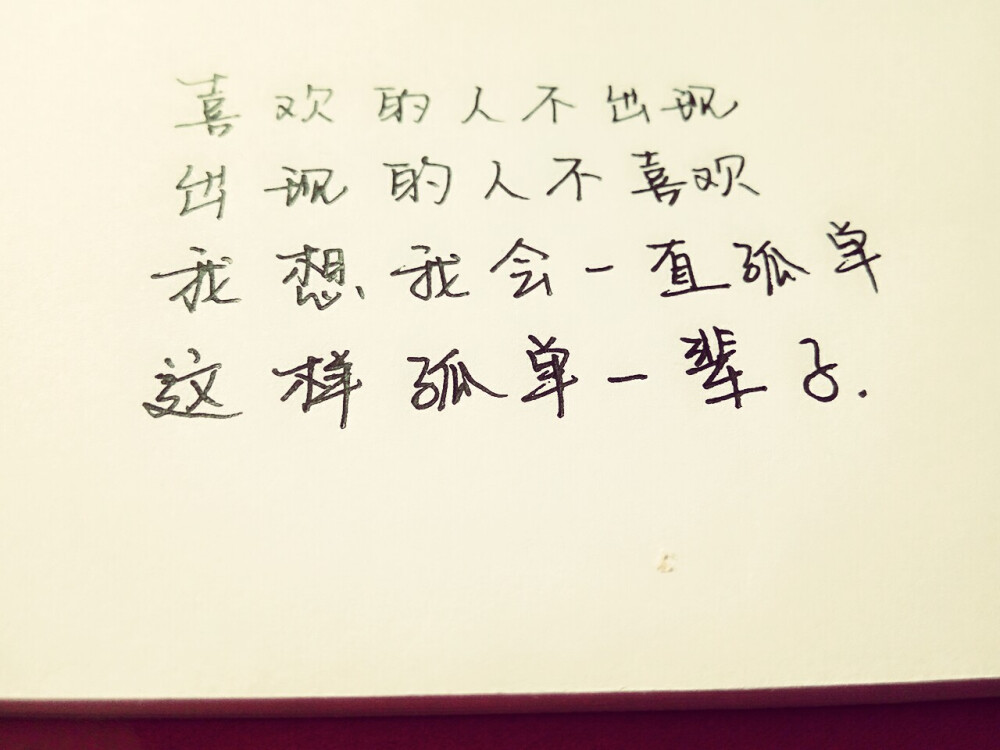 喜欢的人不出现
出现的人不喜欢
我想我会一直孤单
这样孤单一辈子.